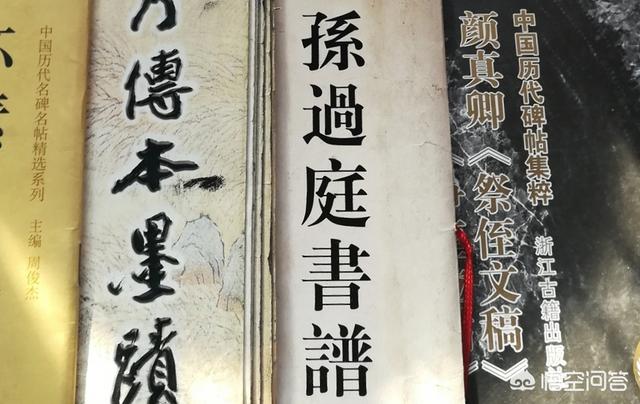 中国历代名碑名帖精选系列
主编 周俊杰
傳本墨蹟
孫過庭書譜
中国历代碑帖集粹
浙江古籍出版社
颜真卿《祭侄文稿》
悟空问答